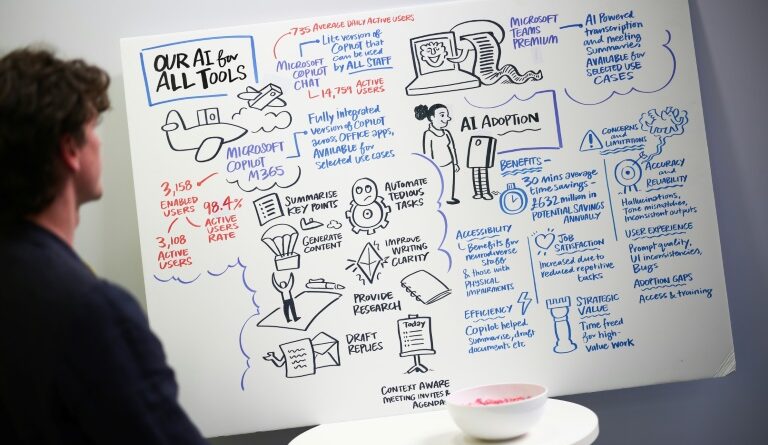 OUR AI for
ALL TOOLS
735 AVERAGE DAILY ACTIVE USERS
MICROSOFT
COPILOT
CHAT
Lite version of
COPILOT that
can be used
by ALL STAFF
14,759 ACTIVE
USERS
MICROSOFT
TEAMS
PREMIUM
AI Powered
transcription
and meeting
Summaries
AVAILABLE for
SELECTED USE
CASES
MICROSOFT
COPILOT
M365
Fully Integrated
version of COPILOT
across OFFICE apps,
AVAILABLE for
selected use cases
3,158
ENABLED
USERS
98.4%
ACTIVE
USERS
RATE
3,108
ACTIVE
USERS
SUMMARISE
KEY POINTS
AUTOMATE
TEDIOUS
TASKS
GENERATE
CONTENT
IMPROVE
WRITING
CLARITY
PROVIDE
RESEARCH
DRAFT
REPLIES
Today
CONTEXT AWARE
MEETING INVITES &
AGENDA
AI ADOPTION
BENEFITS –
30 mins average
time savings –
£632 million in
POTENTIAL SAVINGS
ANNUALLY
ACCESSIBILITY
Benefits for
neurodiverse
staff
& those with
PHYSICAL
IMPAIRMENTS
JOB
SATISFACTION
Increased due to
reduced repetitive
tasks
EFFICIENCY
Copilot helped
summarise, draft
documents etc
STRATEGIC
VALUE
Time freed
for high-
value work
CONCERNS
and
LIMITATIONS
ACCURACY
and
RELIABILITY
Hallucinations,
Tone mismatches,
inconsistent outputs
USER EXPERIENCE
Prompt quality,
UI inconsistencies,
Bugs
ADOPTION GAPS
Access & training